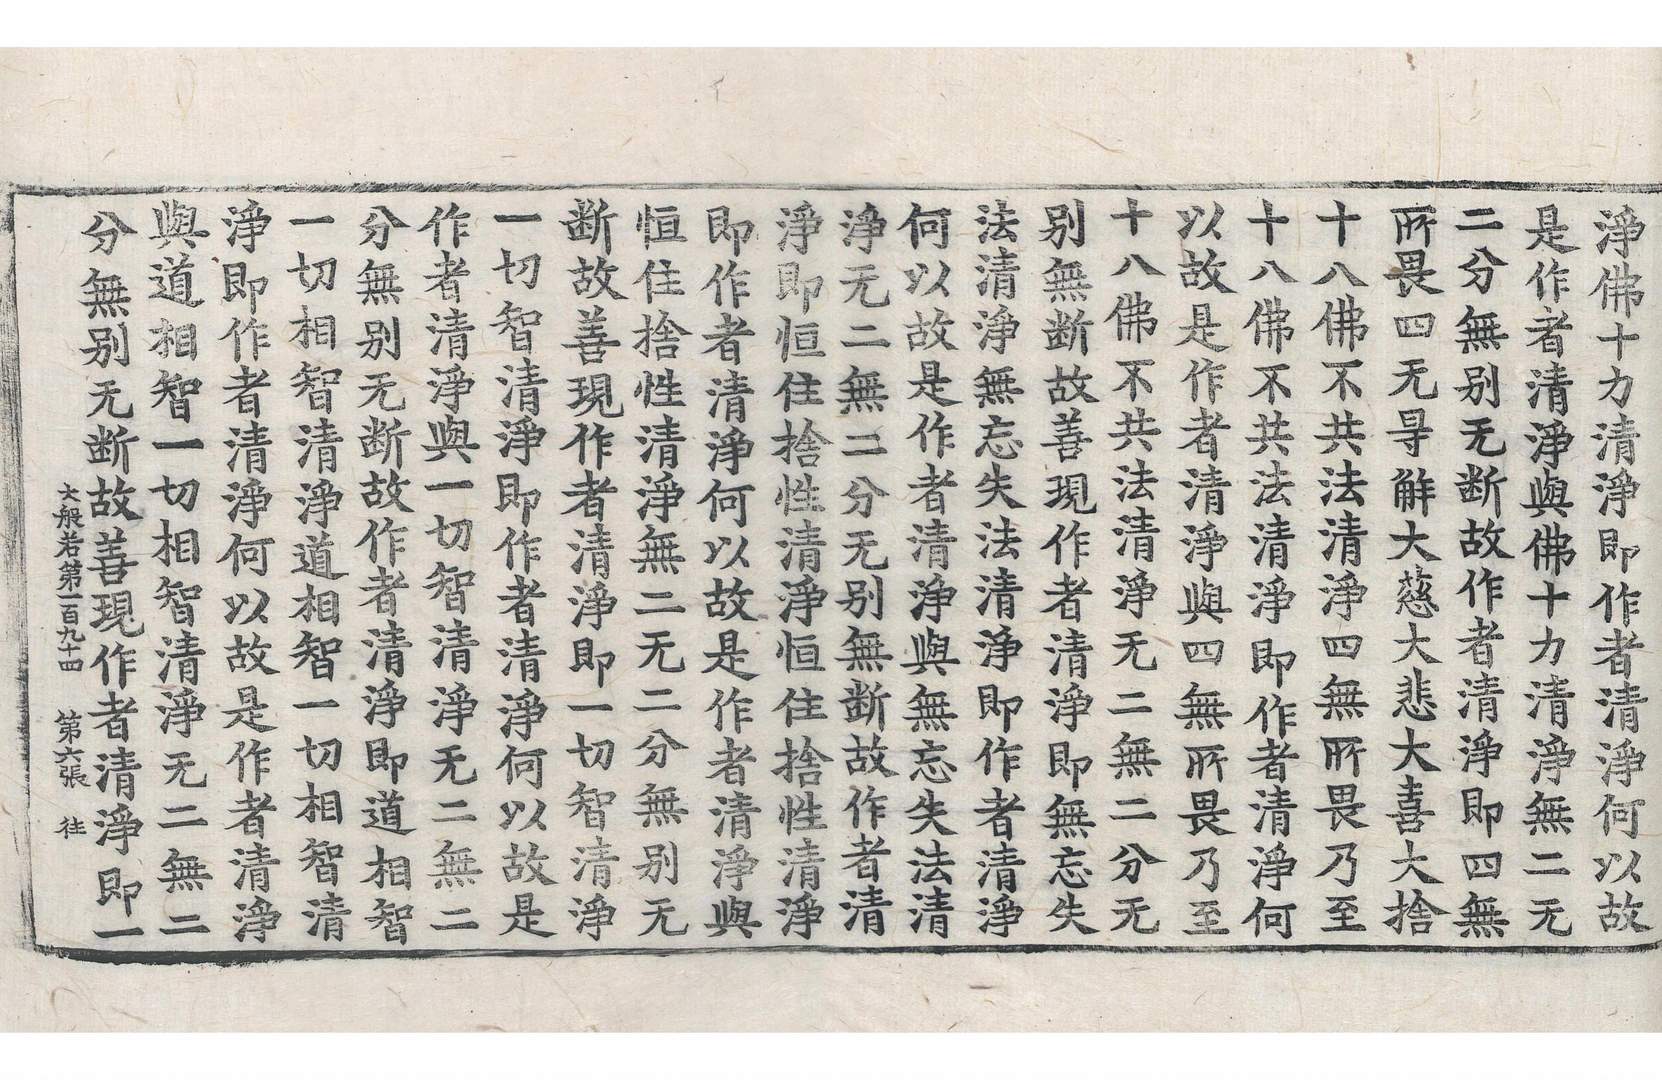 淨佛十力清淨即作者清淨何以故
是作者清淨與佛十力清淨無二无
二分無别无断故作者清淨即四無
所畏四无㝵解大慈大悲大喜大捨
十八佛不共法清淨四無所畏乃至
十八佛不共法清淨即作者清淨何
以故是作者清淨與四無所畏乃至
十八佛不共法清淨无二無二分无
别無断故善現作者清淨即無忘失
法清淨無忘失法清淨即作者清淨
何以故是作者清淨與無忘失法清
淨无二無二分无别無断故作者清
淨即恒住捨性清淨恒住捨性清淨
即作者清淨何以故是作者清淨與
恒住捨性清淨無二无二分無别无
断故善現作者清淨即一切智清淨
一切智清淨即作者清淨何以故是
作者清淨與一切智清淨无二無二
分無别无断故作者清淨即道相智
一切相智清淨道相智一切相智清
淨即作者清淨何以故是作者清淨
與道相智一切相智清淨无二無二
分無别无断故善現作者清淨即一
大般若第一百九十四 第六張 往